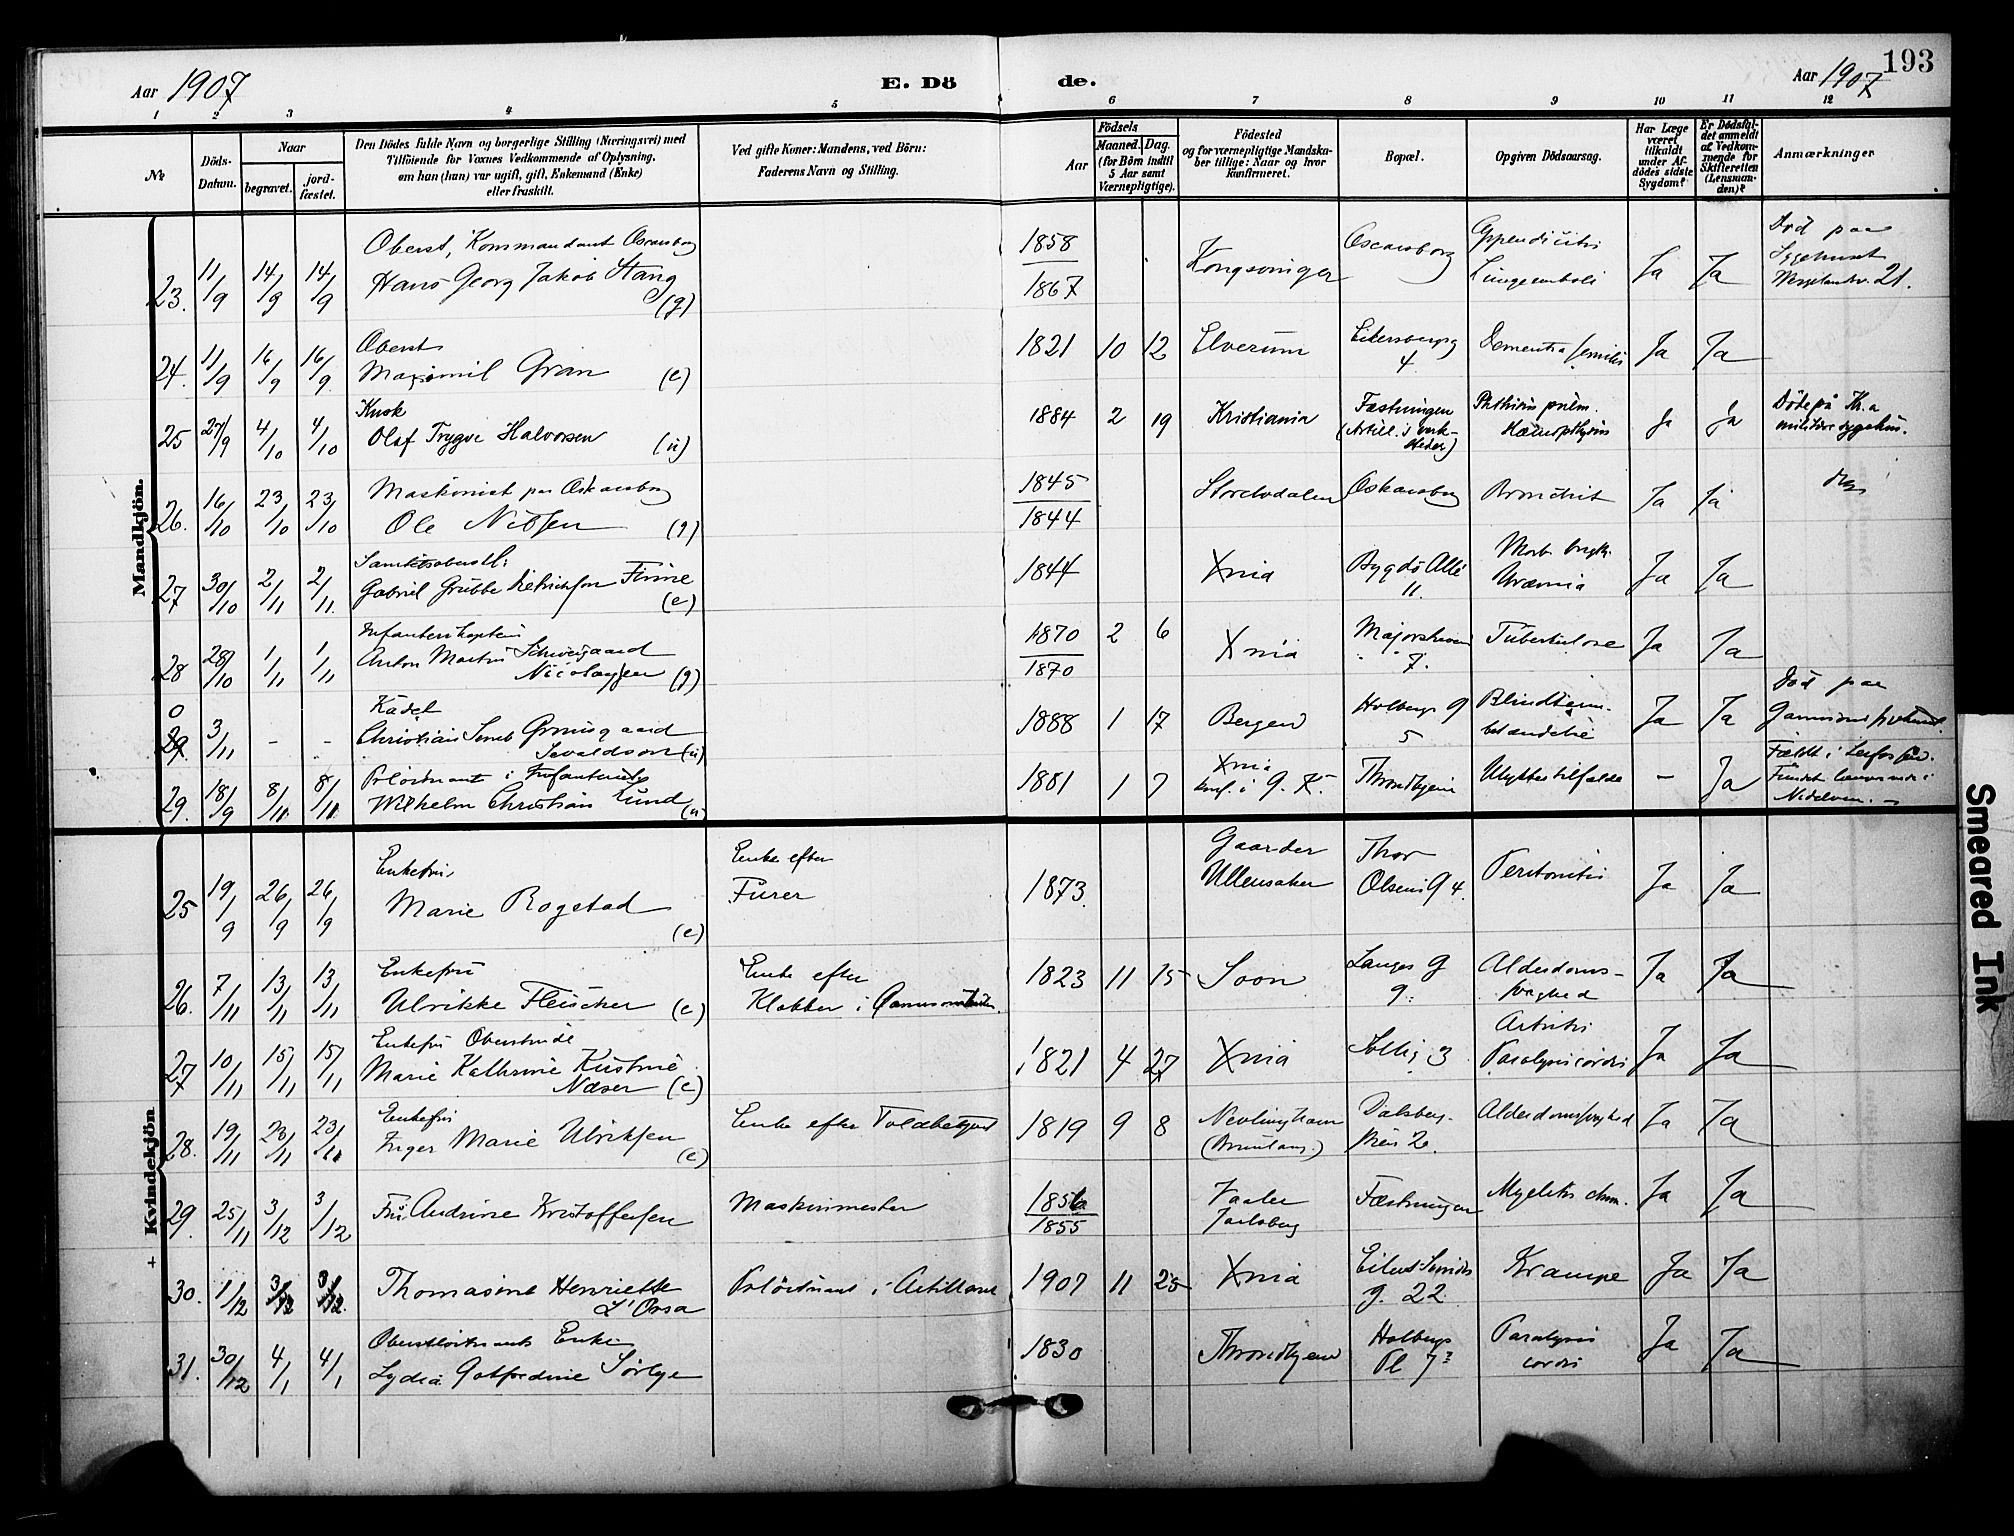 193
Aar 1907
E. Dö
de.
Aar 1907
1 2 3 4 5 6 7 8 9 10 11 12
№
Döds-Datum.
Naar
begravet.
jord-fæstet.
Den Dödes fulde Navn og borgerlige Stilling (Næringsvei) med
Tilföiende for Voxnes Vedkommende af Oplysning,
om han (hun) var ugift, gift, Enkemand (Enke)
eller fraskilt.
Ved gifte Koner: Mandens, ved Börn:
Faderens Navn og Stilling.
Födsels
Aar
Maaned. Dag.
(for Börn indtil
5 Aar samt
Værnepligtige).
Födested
og for værnepligtige Mandska-
ber tillige: Naar og hvor
konfirmeret.
Bopæl.
Opgiven Dödsaarsag.
Har Læge
været
tilkaldt
under Af-
dödes sidste
Sygdom?
Er Dödsfal-
det anmeldt
af Vedkom-
mende for
Skifteretten
(Lensman-
den)?
Anmærkninger
Mandkjön.
23. 11/9 14/9 14/9 Oberst, Kommandant Oscarsborg
Hans Georg Jakob Stang (g)
1858
1867
Kongsvinger Oscarsborg Appendicitis
Lungeemboli Ja Ja Död paa
Sygehuset
Wergelandsv. 21.
24. 11/9 16/9 16/9 Oberst
Maximil Gran (e) 1821 10 12 Elverum Eilersbergsg
4 Dementia senilis Ja Ja
25 27/9 4/10 4/10 Kusk
Olaf Trygve Halvorsen (u) 1884 2 19 Kristiania Fæstningen
(Artill.s verk-
steder) Phthisis pulm.
Hæmopthysis Ja Ja Döde på Kr.a
militære sygehus.
26. 16/10 23/10 23/10 Maskinist paa Oskarsborg
Ole Nilsen (g) 1845
1844
Storelvdalen Oskarsborg Bronchit Ja Ja
27 30/10 2/11 2/11
Gabriel Grubbe Dietrichson Finne (e) 1844 Xnia Bygdö Allé
11. Morb. brigth.
Uræmia Ja Ja
28 28/10 1/11 1/11 Infanterikaptein
Anton Martin Schweigaard
Nicolaysen (g) 1870
1870 2 6 Xnia Majorstuveien
7. Tuberkulose Ja Ja
0
29 3/11 - - Kadet
Christian
Sevaldson (u) 1888 1 17 Bergen Holbergs g
5 Blindtarm-
betændelse Ja Ja Död paa
29. 18/9 8/11 8/11 Prlöitnant i Infanteriet
Wilhelm Christian Lund (u) 1881 1 7 Xnia
konf. i G. K. Throndhjem Ulykkestilfælde - Ja Faldt i Lerfossen.
Fundet
Nidelven.
Kvindekjön
+
25 19/9 26/9 26/9 Enkefru
Marie Rogstad (e) Enke efter
Furer 1873 Gaarder
Ullensaker Thor
Olsens g 4. Peritonitis Ja Ja
26. 7/11 13/11 13/11 Enkefru
Ulrikke Fleischer (e) Enke efter
Klokker i 1823 11 15 Soon Langes g
9. Alderdoms-
svaghed Ja Ja
27 10/11 15/11 15/11 Enkefru Oberstinde
Marie Kathrine Kristine
Næser (e) 1821 4 27 Xnia Sollig 3 Artritis
Paralysis cordis Ja Ja
28. 19/11 23/11 23/11 Enkefru
Inger Marie Ulriksen (e) Enke efter Toldbetjent 1819 9 8 Nevlunghavn
(Brunlanes.) Dalsberg-
stien 2. Alderdomssvaghed Ja Ja
29. 25/11 3/12 3/12 Fru Andrine Kristoffersen Maskinmester 1856
1855 Vaaler
Jarlsberg Fæstningen Myelitis chron. Ja Ja
30. 1/12 3/12 3/12 Thomasine Henriette
L'Orsa Prlöitnant i Artilleriet 1907 11 25 Xnia Eilert Sundts
g. 22. Krampe Ja Ja
31. 30/12 4/1 4/1 Oberstlöitnants Enke
Lydia Gotfredine Sörbye 1830 Throndhjem Holbergs
Pl 7 Paralysis
cordis Ja Ja
Smeared Ink